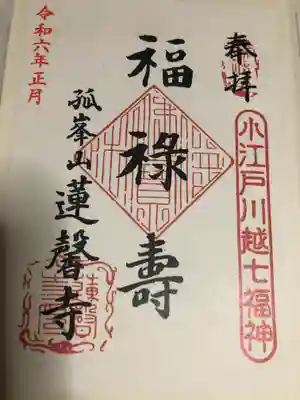 奉拝
小江戸川越七福神
福禄壽
孤峯山蓮馨寺
令和六年正月